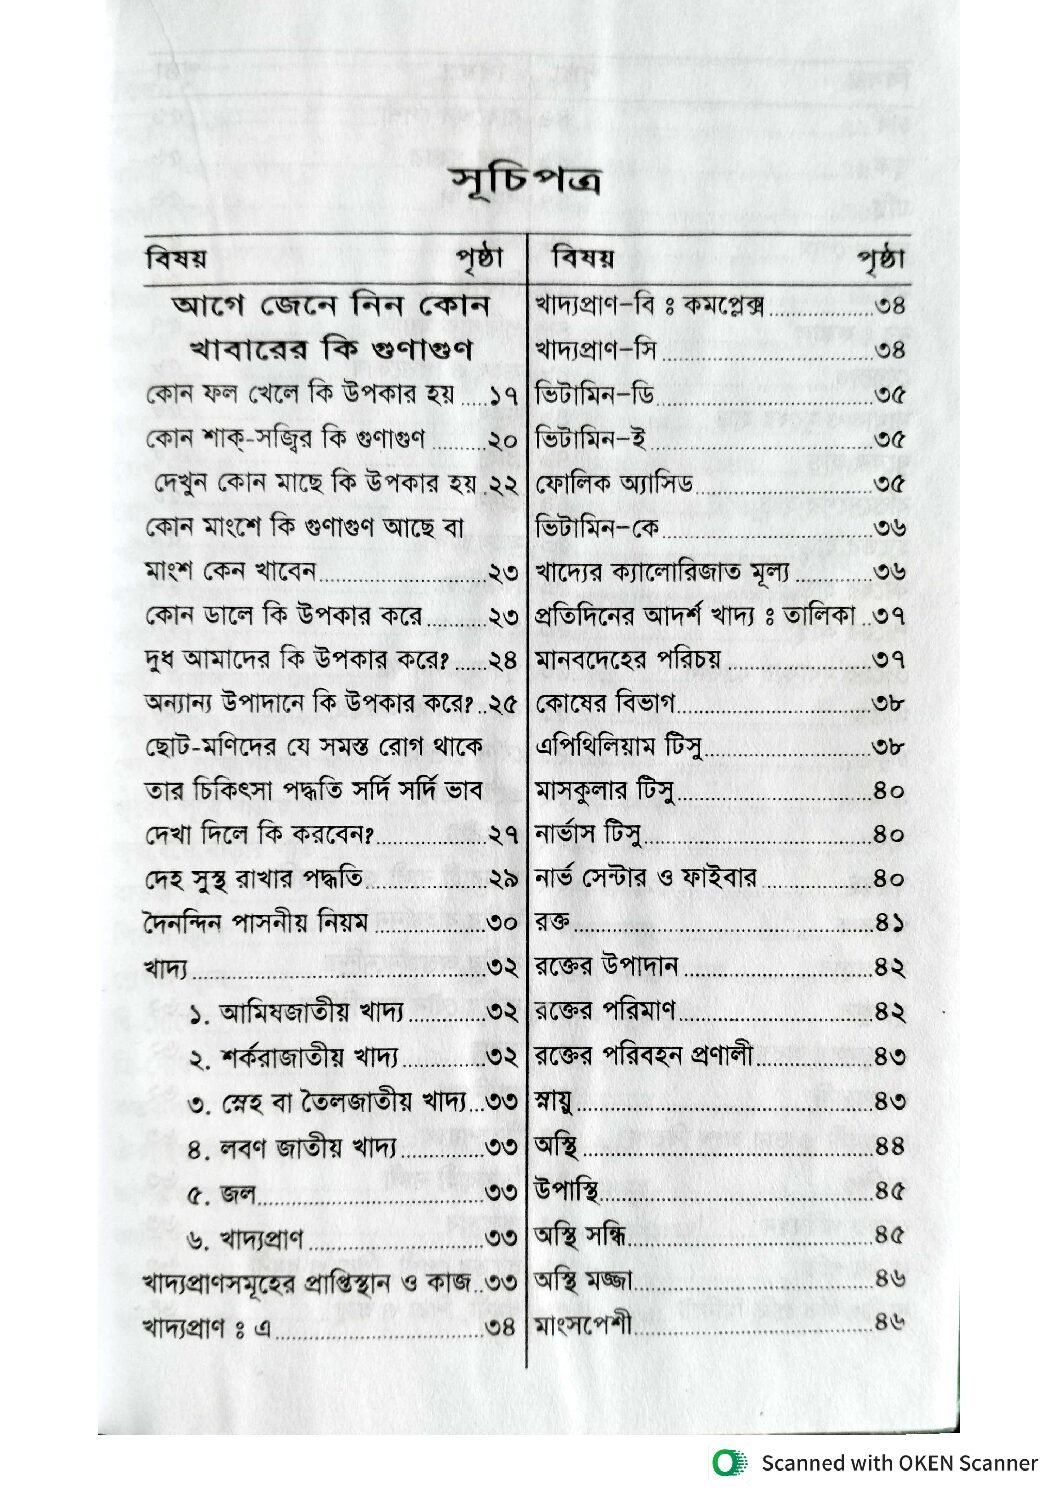 সূচিপত্র
বিষয় পৃষ্ঠা
আগে জেনে নিন কোন
খাবারের কি গুণাগুণ
কোন ফল খেলে কি উপকার হয় .....১৭
কোন শাক্-সব্জির কি গুণাগুণ .........২০
দেখুন কোন মাছে কি উপকার হয় .২২
কোন মাংশে কি গুণাগুণ আছে বা
মাংশ কেন খাবেন...........................২৩
কোন ডালে কি উপকার করে..........২৩
দুধ আমাদের কি উপকার করে?......২৪
অন্যান্য উপাদানে কি উপকার করে?..২৫
ছোট-মণিদের যে সমস্ত রোগ থাকে
তার চিকিৎসা পদ্ধতি সর্দি সর্দি ভাব
দেখা দিলে কি করবেন?..................২৭
দেহ সুস্থ রাখার পদ্ধতি....................২৯
দৈনন্দিন পাসনীয় নিয়ম ..................৩০
খাদ্য...............................................৩২
১. আমিষজাতীয় খাদ্য ............৩২
২. শর্করাজাতীয় খাদ্য .............৩২
৩. স্নেহ বা তৈলজাতীয় খাদ্য ...৩৩
৪. লবণ জাতীয় খাদ্য ..............৩৩
৫. জল....................................৩৩
৬. খাদ্যপ্রাণ ............................৩৩
খাদ্যপ্রাণসমূহের প্রাপ্তিস্থান ও কাজ..৩৩
খাদ্যপ্রাণ ঃ এ .................................৩৪
বিষয় পৃষ্ঠা
খাদ্যপ্রাণ-বি ঃ কমপ্লেক্স................৩৪
খাদ্যপ্রাণ-সি ..................................৩৪
ভিটামিন-ডি...................................৩৫
ভিটামিন-ই.....................................৩৫
ফোলিক অ্যাসিড............................৩৫
ভিটামিন-কে..................................৩৬
খাদ্যের ক্যালোরিজাত মূল্য ............৩৬
প্রতিদিনের আদর্শ খাদ্য ঃ তালিকা ..৩৭
মানবদেহের পরিচয় .......................৩৭
কোষের বিভাগ...............................৩৮
এপিথিলিয়াম টিসু...........................৩৮
মাসকুলার টিসু...............................৪০
নার্ভাস টিসু....................................৪০
নার্ভ সেন্টার ও ফাইবার .................৪০
রক্ত ...............................................৪১
রক্তের উপাদান ..............................৪২
রক্তের পরিমাণ...............................৪২
রক্তের পরিবহন প্রণালী..................৪৩
স্নায়ু................................................৪৩
অস্থি...............................................৪৪
উপাস্থি...........................................৪৫
অস্থি সন্ধি......................................৪৫
অস্থি মজ্জা.....................................৪৬
মাংসপেশী.....................................৪৬
Scanned with OKEN Scanner